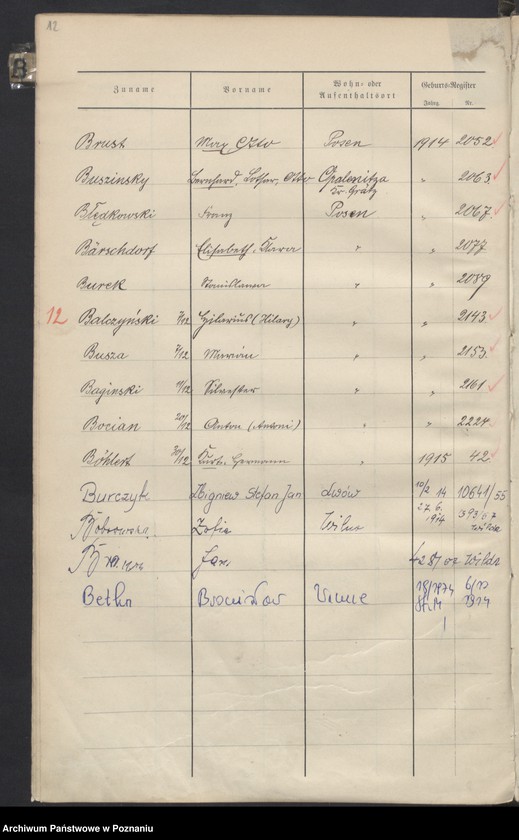 12
B
Zuname Vorname Wohn- oder Aufenthaltsort Geburts-Register
Jahrg. Nr.
Brust Max Otto Posen 1914 2052
Buszinsky Bernhard, Lothar, Otto Opalenitza Kr. Grätz " 2063
Błędkowski Franz Posen " 2067
Bärschdorf Elisabeth, Klara " " 2077
Burek Stanislawa " " 2089
12 Balczyński 7/12 Hilarius (Hilary) " " 2143
Busza 7/12 Marian " " 2153
Baginski 9/12 Silvester " " 2161
Bocian 20/12 Anton (Antoni) " " 2224
Böhlert 30/12 Kurt, Hermann " 1915 42
Burczyk Zbigniew Stefan Jan Lwów 10/2 14 10641/55
Bobrowska Zofia Wilno 27.6. 1914
Jan
Betka
Archiwum Państwowe w Poznaniu